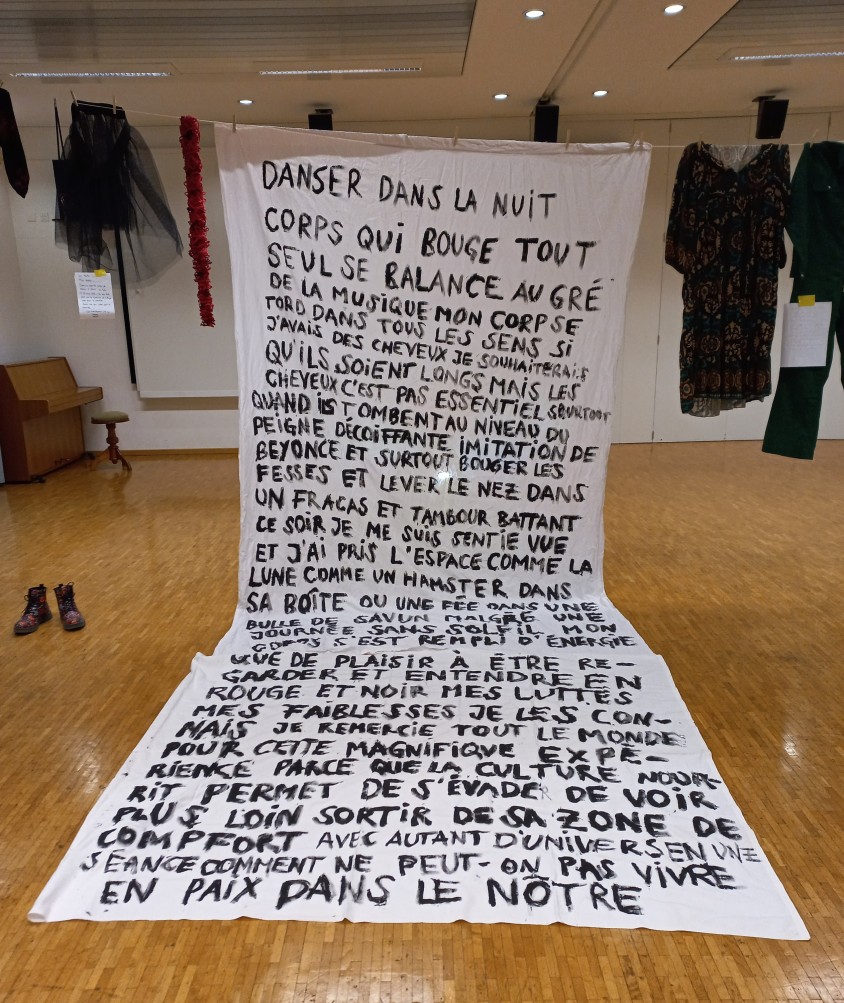 DANSER DANS LA NUIT
CORPS QUI BOUGE TOUT
SEUL SE BALANCE AU GRÉ
DE LA MUSIQUE MON CORPSE
TORD DANS TOUS LES SENS SI
J'AVAIS DES CHEVEUX JE SOUHAITERAIS
QU'ILS SOIENT LONGS MAIS LES
CHEVEUX C'EST PAS ESSENTIEL SURTOUT
QUAND ILS TOMBENT AU NIVEAU DU
PEIGNE DÉCOIFFANTE IMITATION DE
BEYONCE ET SURTOUT BOUGER LES
FESSES ET LEVER LE NEZ DANS
UN FRACAS ET TAMBOUR BATTANT
CE SOIR JE ME SUIS SENTIE VUE
ET J'AI PRIS L'ESPACE COMME LA
LUNE COMME UN HAMSTER DANS
SA BOÎTE OU UNE FÉE DANS UNE
BULLE DE SAVON MALGRÉ UNE
JOURNÉE SANS SOLEIL MON
CORPS S'EST REMPLI D'ÉNERGIE
QUE DE PLAISIR À ÊTRE RE-
GARDER ET ENTENDRE EN
ROUGE ET NOIR MES LUTTES
MES FAIBLESSES JE LES CON-
NAIS JE REMERCIE TOUT LE MONDE
POUR CETTE MAGNIFIQUE EXPÉ-
RIENCE PARCE QUE LA CULTURE NOUR-
RIT PERMET DE S'ÉVADER DE VOIR
PLUS LOIN SORTIR DE SA ZONE DE
COMPFORT AVEC AUTANT D'UNIVERS EN UNE
SÉANCE COMMENT NE PEUT-ON PAS VIVRE
EN PAIX DANS LE NÔTRE